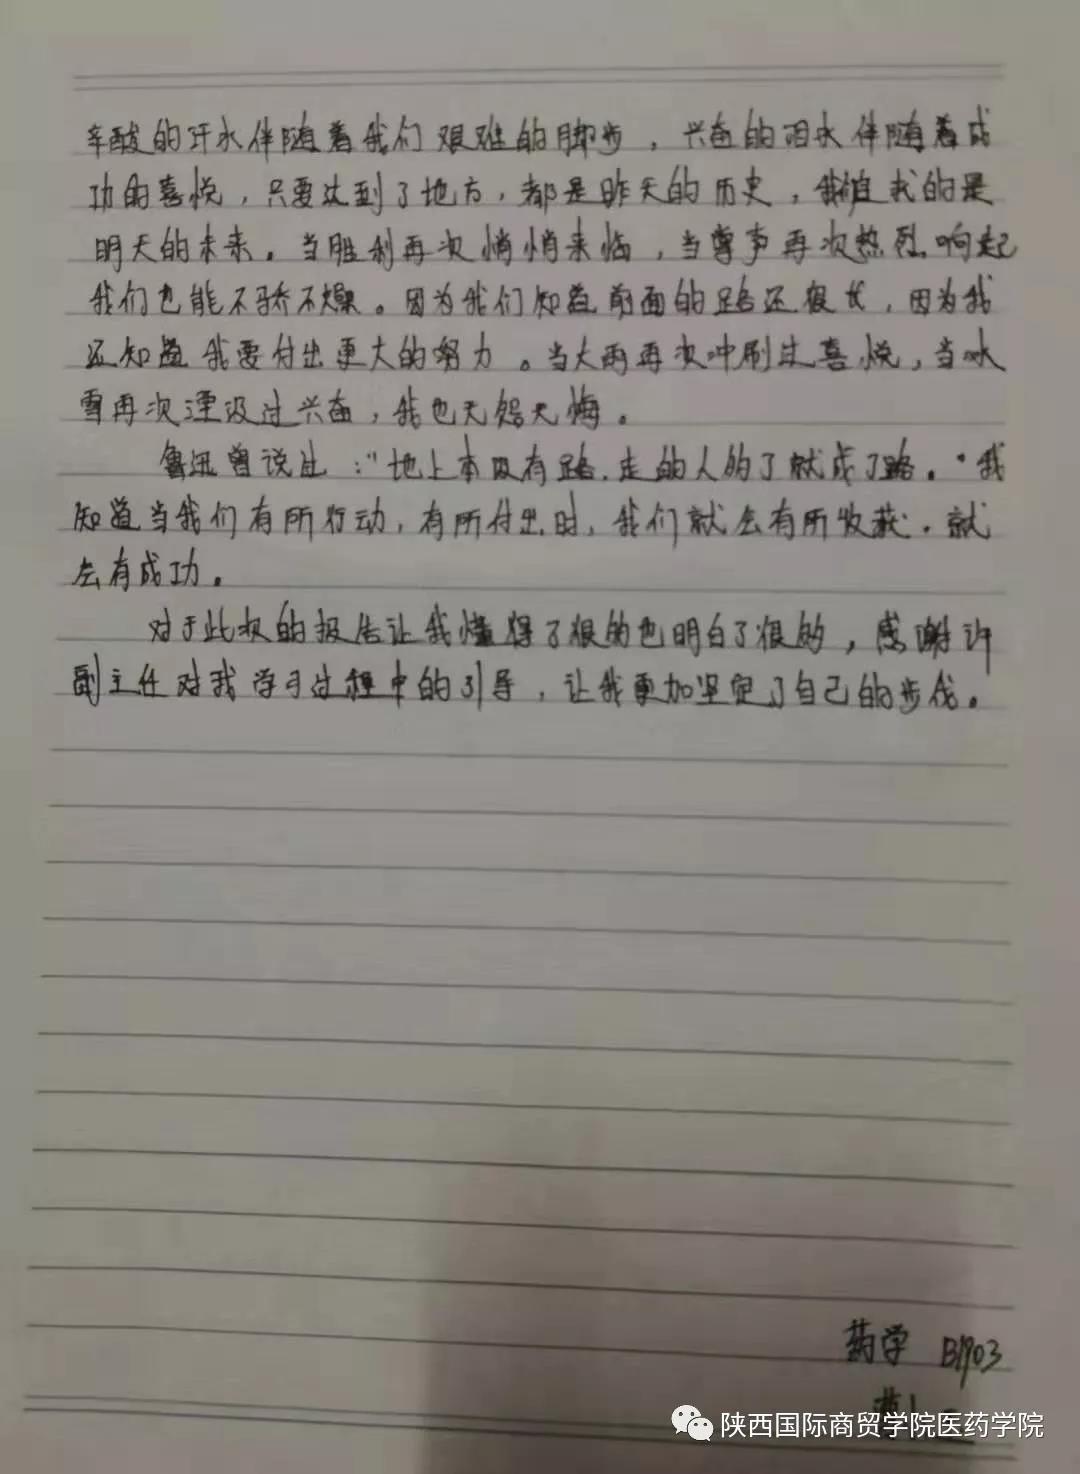 辛酸的汗水伴随着我们艰难的脚步，兴奋的泪水伴随着成
功的喜悦，只要达到了地方，都是昨天的历史，我们追求的是
明天的未来。当胜利再次悄悄来临，当掌声再次热烈响起
我们也能不骄不燥。因为我们知道前面的路还很长，因为我
还知道我要付出更大的努力。当大雨再次冲刷过喜悦，当冰
雪再次浸没过兴奋，我也无怨无悔。
鲁迅曾说过："地上本没有路，走的人多了就成了路。"我
知道当我们有所行动，有所付出时，我们就会有所收获，就
会有成功。
对于此次的报告让我懂得了很多也明白了很多，感谢许
副主任对我学习过程中的引导，让我更加坚定了自己的步伐。
药学 B1903
陕西国际商贸学院医药学院